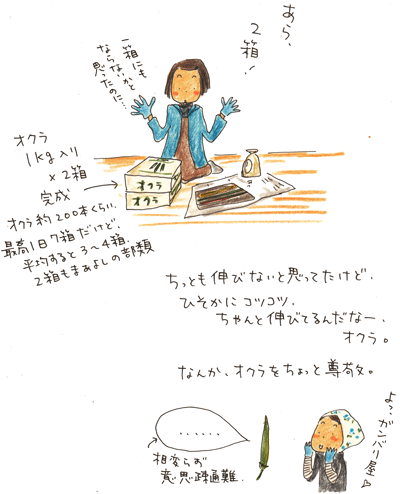 あら、
2箱！
一箱にも
ならないかと
思ったのに…
オクラ
1kg入り
×2箱
完成
オクラ約200本くらい。
最高1日7箱だけど、
平均すると3〜4箱。
2箱もまあよしの部類
オクラ
オクラ
ちっとも伸びないと思ってたけど、
ひそかにコツコツ、
ちゃんと伸びてるんだなー、
オクラ。
なんか、オクラをちょっと尊敬。
よっ、ガンバリ屋♡
……
相変らず
意思疎通難。